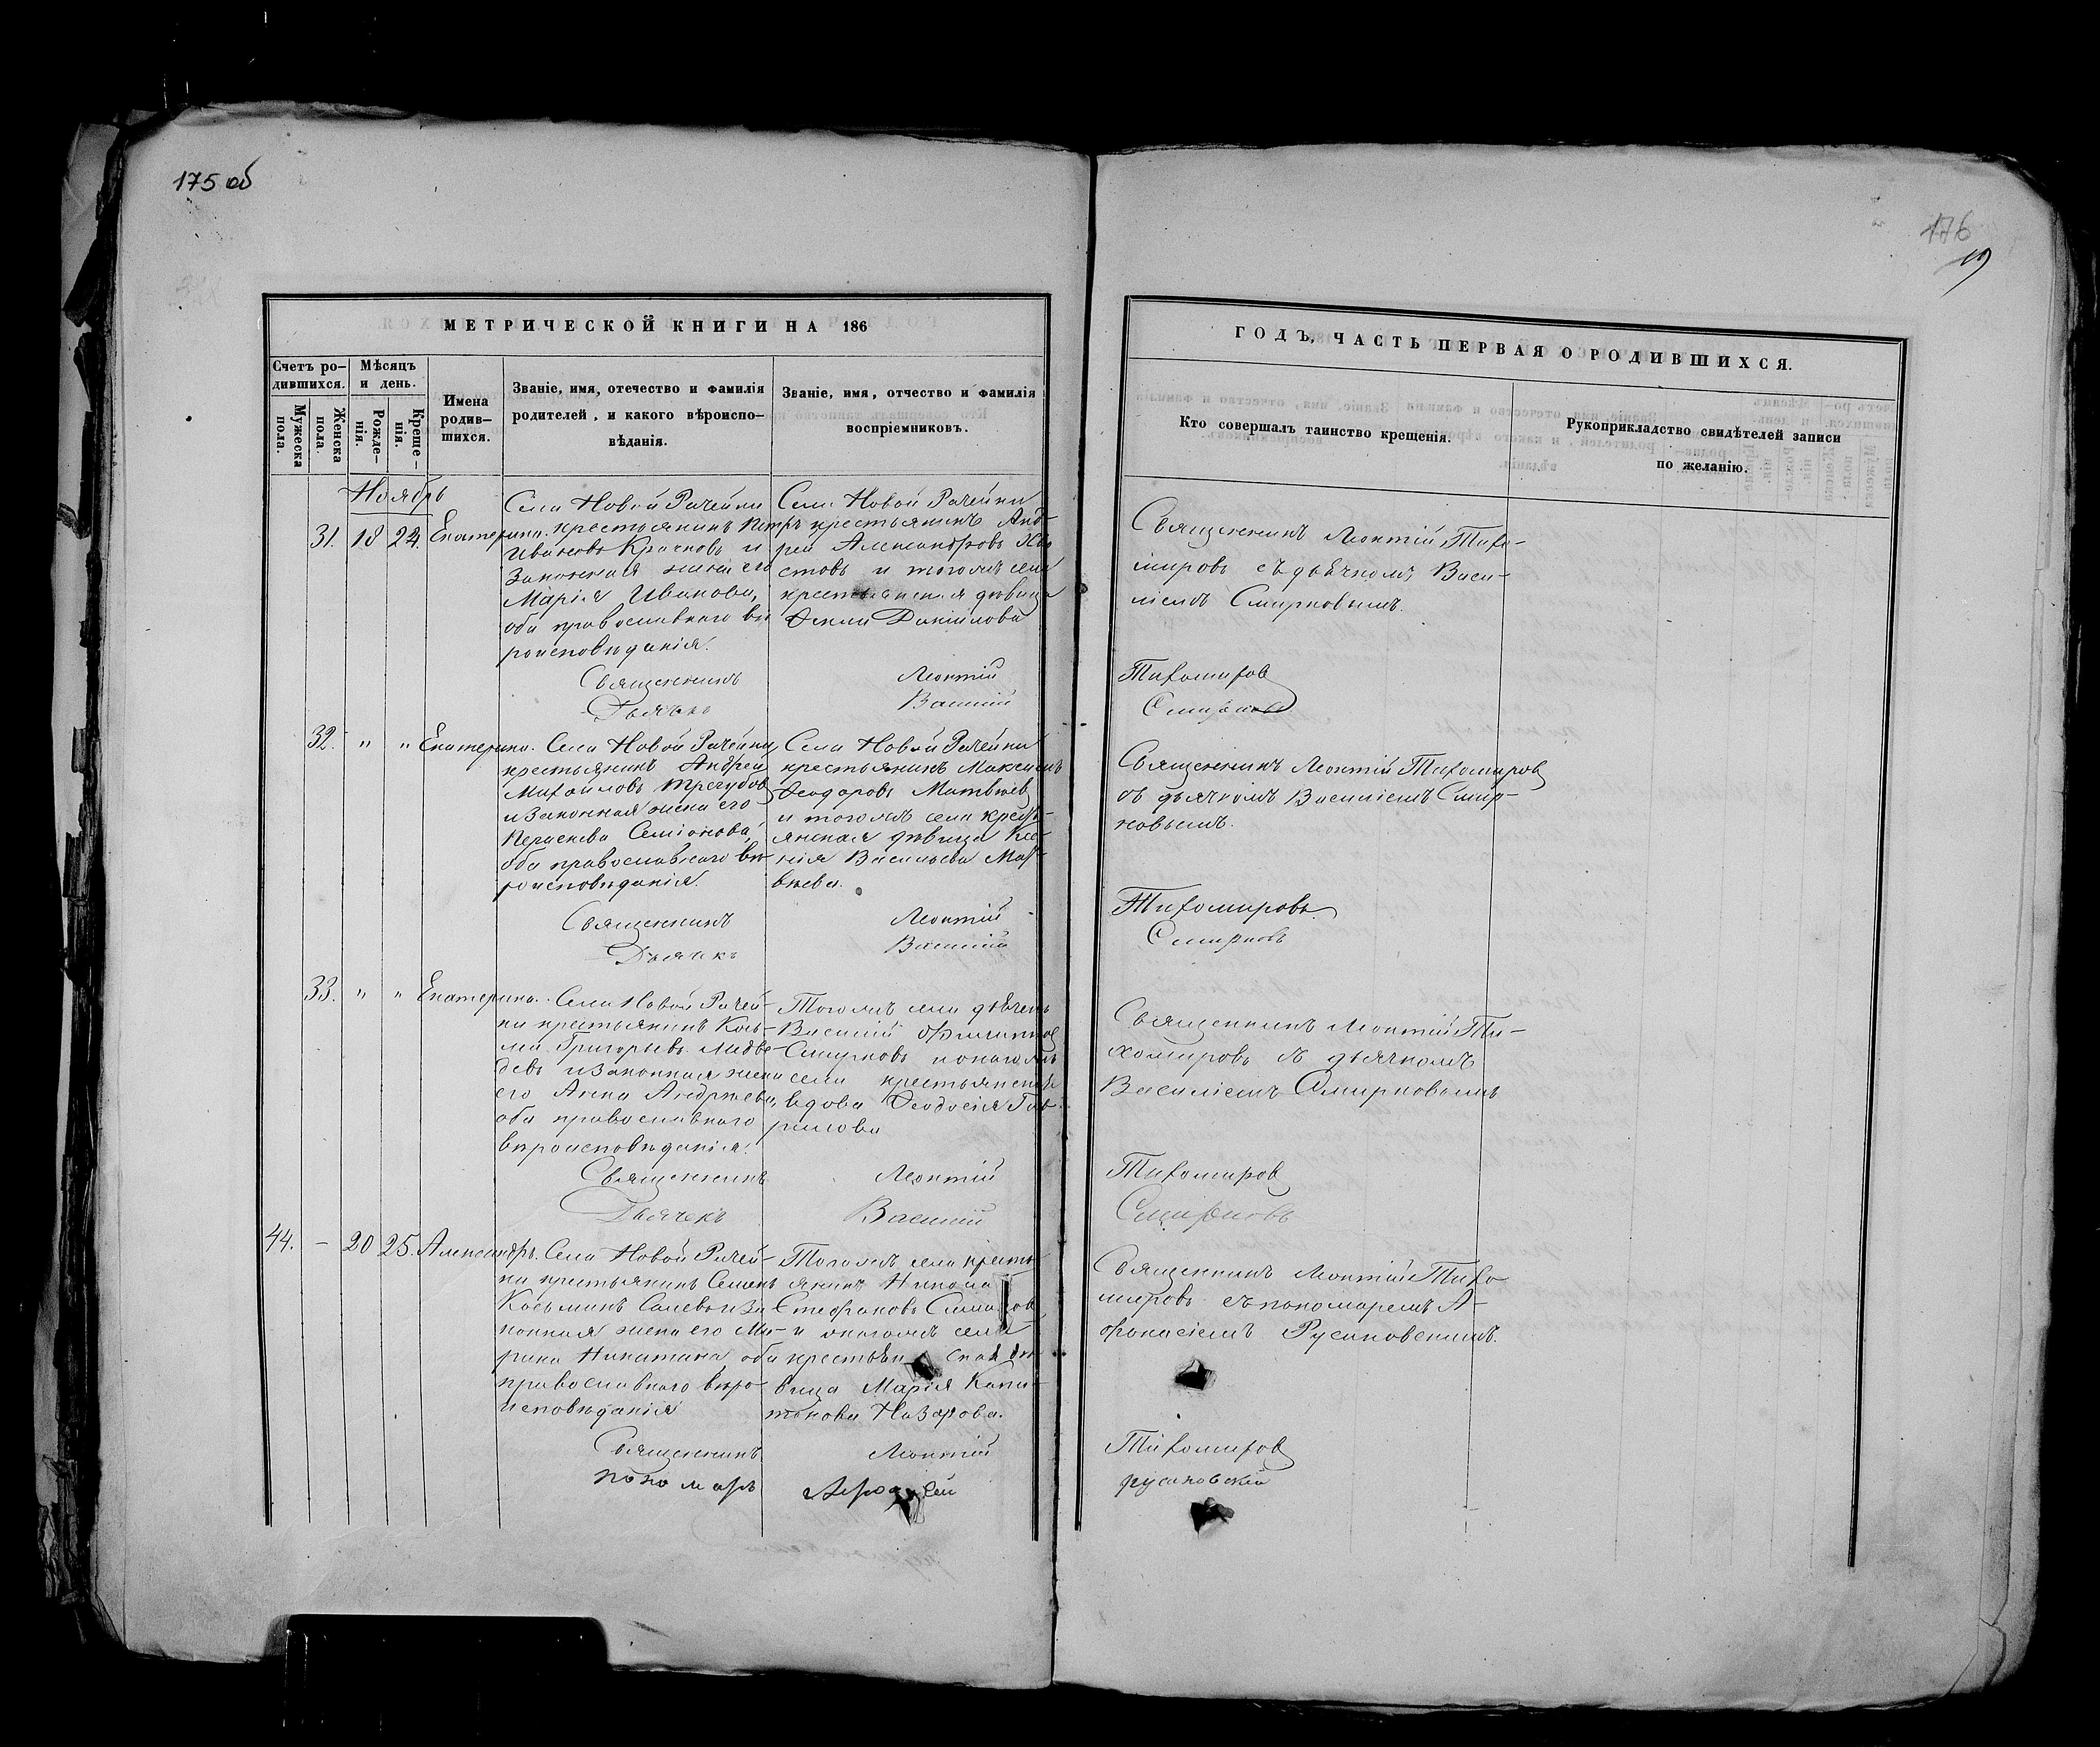 175 об
176
19
МЕТРИЧЕСКОЙ КНИГИ НА 186
ГОДЪ, ЧАСТЬ ПЕРВАЯ О РОДИВШИХСЯ.
Счетъ ро-
дившихся.
Мужеска
пола.
Женска
пола.
Мѣсяцъ
и день.
Рожде-
нія.
Креще-
нія.
Имена
родив-
шихся.
Званіе, имя, отечество и фамилія
родителей, и какого вѣроиспо-
вѣданія.
Званіе, имя, отчество и фамилія
воспріемниковъ.
Кто совершалъ таинство крещенія.
Рукоприкладство свидѣтелей записи
по желанію.
Ноябрь
31. 18 24. Екатерина.
Села Новой Рачейки
крестьянинъ Петръ
Ивановъ Крачковъ и
Законная жена его
Марія Иванова,
оба православнаго вѣ
роисповѣданія.
Села Новой Рачейки
крестьянинъ Анд-
рей Александровъ
стовъ и тогожъ села
крестьянская дѣвица
Ѳекла Данилова
Священникъ Леонтій Тихо-
мировъ съ дьячкомъ Васи-
ліемъ Смирновымъ.
Священникъ Леонтій Тихомировъ
Дьячекъ Василій Смирновъ
32. " " Екатерина.
Села Новой Рачейки,
крестьянинъ Андрей
Михайловъ Трегубовъ
и Законная жена его
Параскева Семіонова,
оба православнаго вѣ-
роисповѣданія.
Села Новой Рачейки
крестьянинъ Максимъ
Ѳеодоровъ Матвѣевъ
и тогожъ села кресть-
янская дѣвица Ксе-
нія Васильева Мат-
вѣева.
Священникъ Леонтій Тихомировъ
съ дьячкомъ Василіемъ Смир-
новымъ.
Священникъ Леонтій Тихомировъ
Дьячекъ Василій Смирновъ
33. " " Екатерина.
Села Новой Рачей-
ки крестьянинъ Козь-
ма Григорьевъ Медве-
девъ и Законная жена
его Анна Андреева,
оба православнаго
вѣроисповѣданія.
Тогожъ села дьячекъ
Василій Филиппов
Смирновъ и тогожъ
села крестьянская
вдова Ѳеодосія Гав-
рилова
Священникъ Леонтій Ти-
хомировъ съ дьячкомъ
Василіемъ Смирновымъ
Священникъ Леонтій Тихомировъ
Дьячекъ Василій Смирновъ
44. - 20 25. Александръ.
Села Новой Рачей-
ки крестьянинъ Семенъ
Козьминъ и за
конная жена его Ма-
рина Никитина оба
православнаго вѣро-
исповѣданія
Тогожъ села кресть
янинъ Никола
Стефановъ
и тогожъ села
крестьян ская дѣ
вица Марія Капи-
тонова Назарова.
Священникъ Леонтій Тихо
мировъ съ пономаремъ А-
фанасіемъ Русановскимъ.
Священникъ Леонтій Тихомировъ
пономарь русановскій